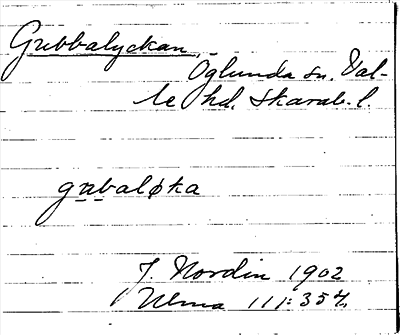 Grubbalyckan,
Öglunda sn. Val-
le hd. Skarab. l.
grubaløka
J. Nordin 1902
Ulma 111:357.